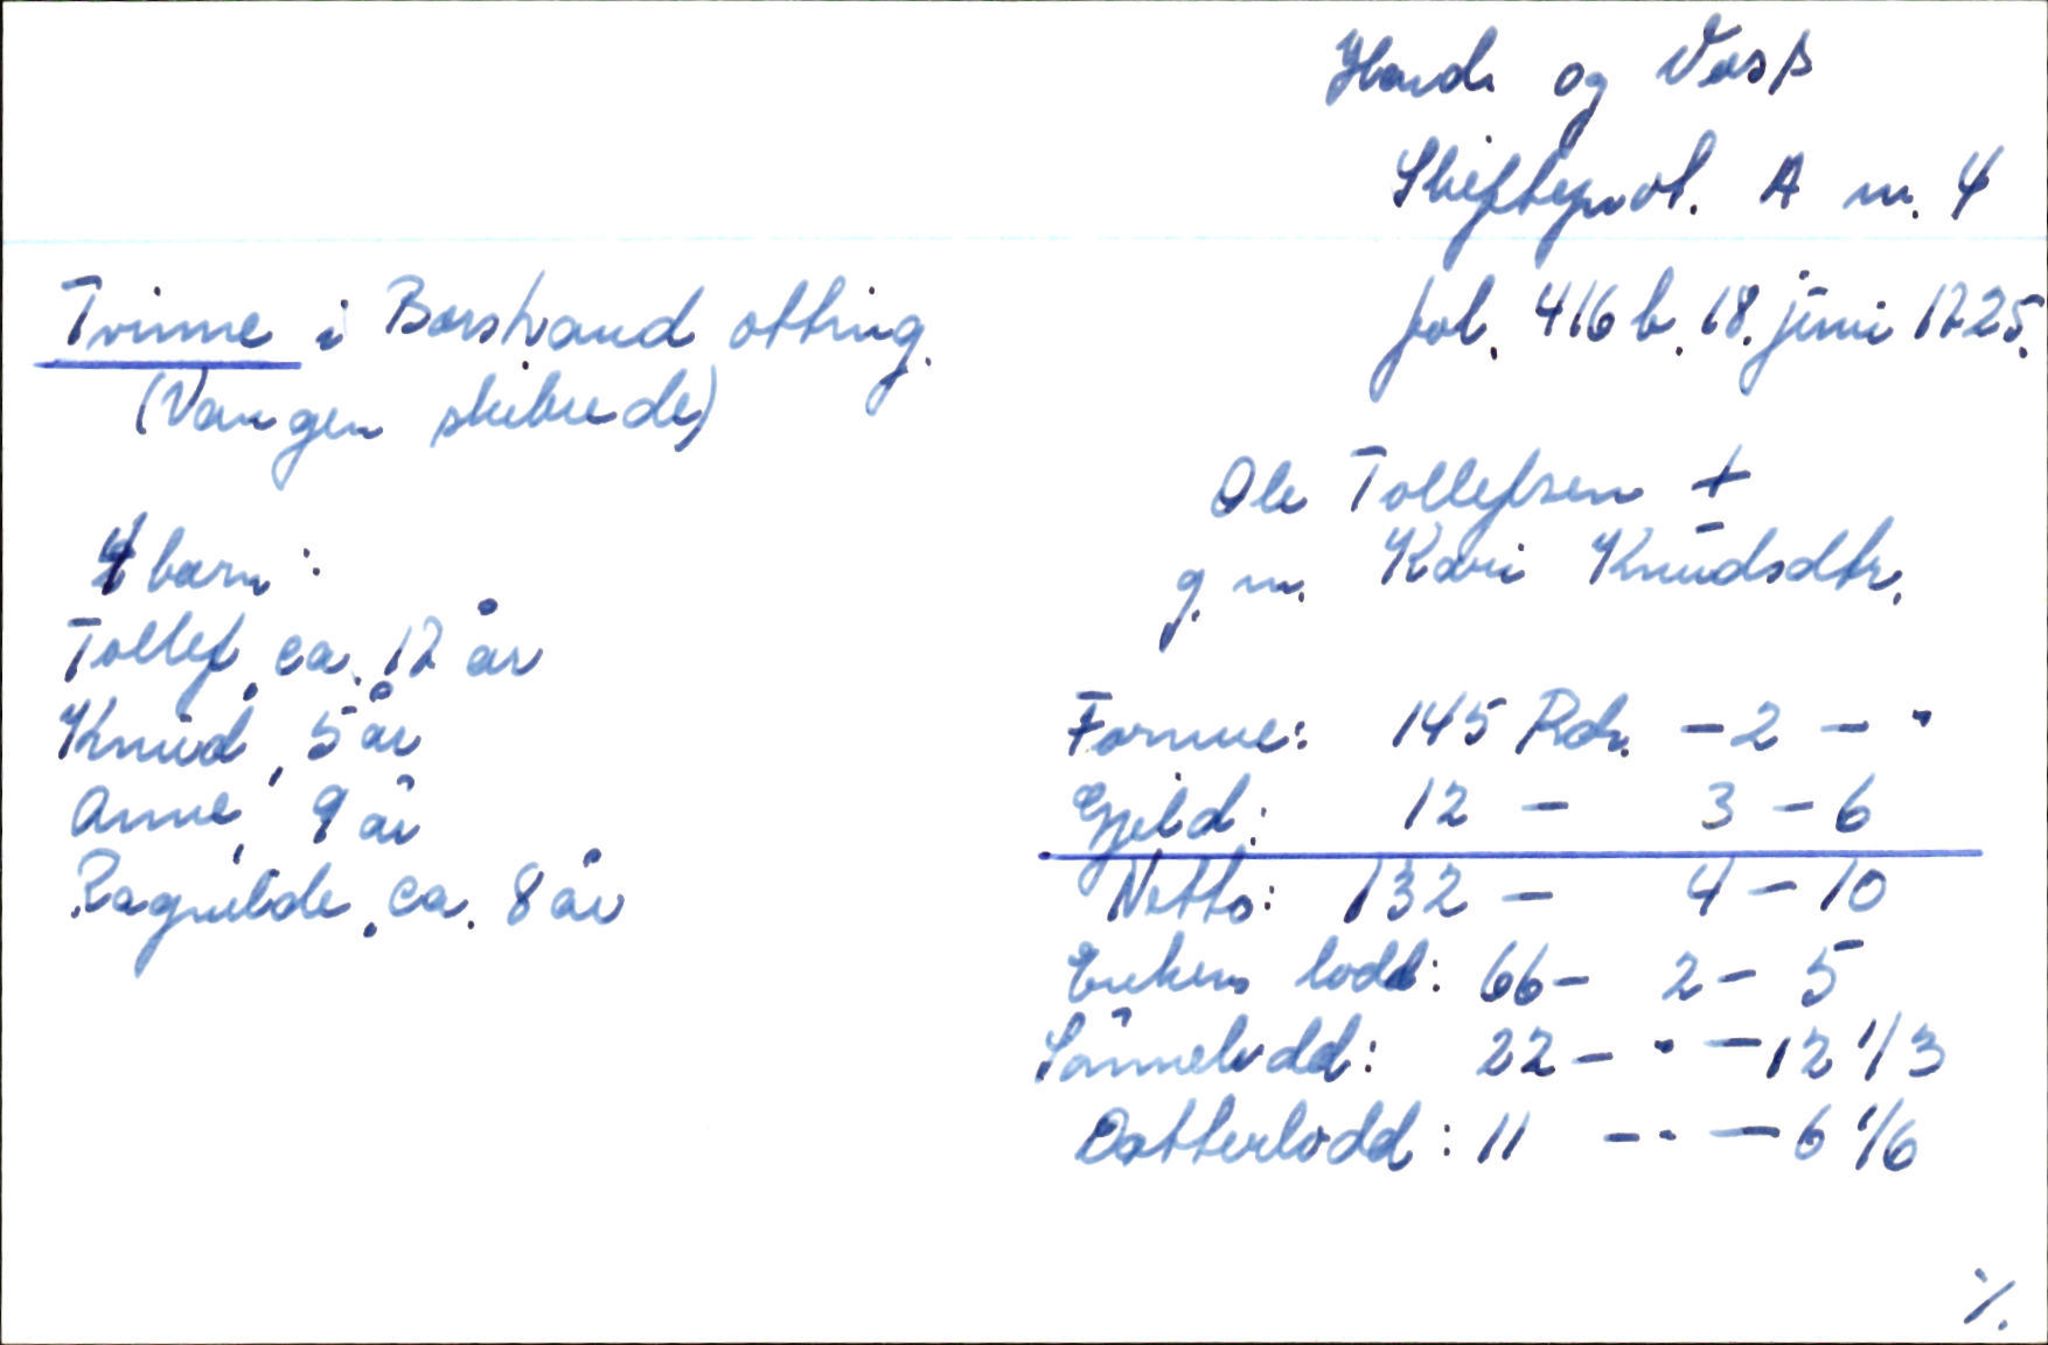 Hard. og Voss
Skifteprot. A nr. 4
fol. 416 b. 18. juni 1725.
Tvinne i Borstrand ottring.
(Vangen skibrede)
Ole Tollefsen +
g. m. Kari Knudsdtr.
4 barn:
Tollef, ca. 12 år
Knud, 5 år
Anne, 9 år
Ragnilde, ca. 8 år
Formue: 145 Rdr. - 2 - "
Gjeld: 12 - 3 - 6
Netto: 132 - 4 - 10
Enkens lodd: 66 - 2 - 5
Sønnelodd: 22 - " - 12 1/3
Datterlodd: 11 - " - 6 1/6
%.